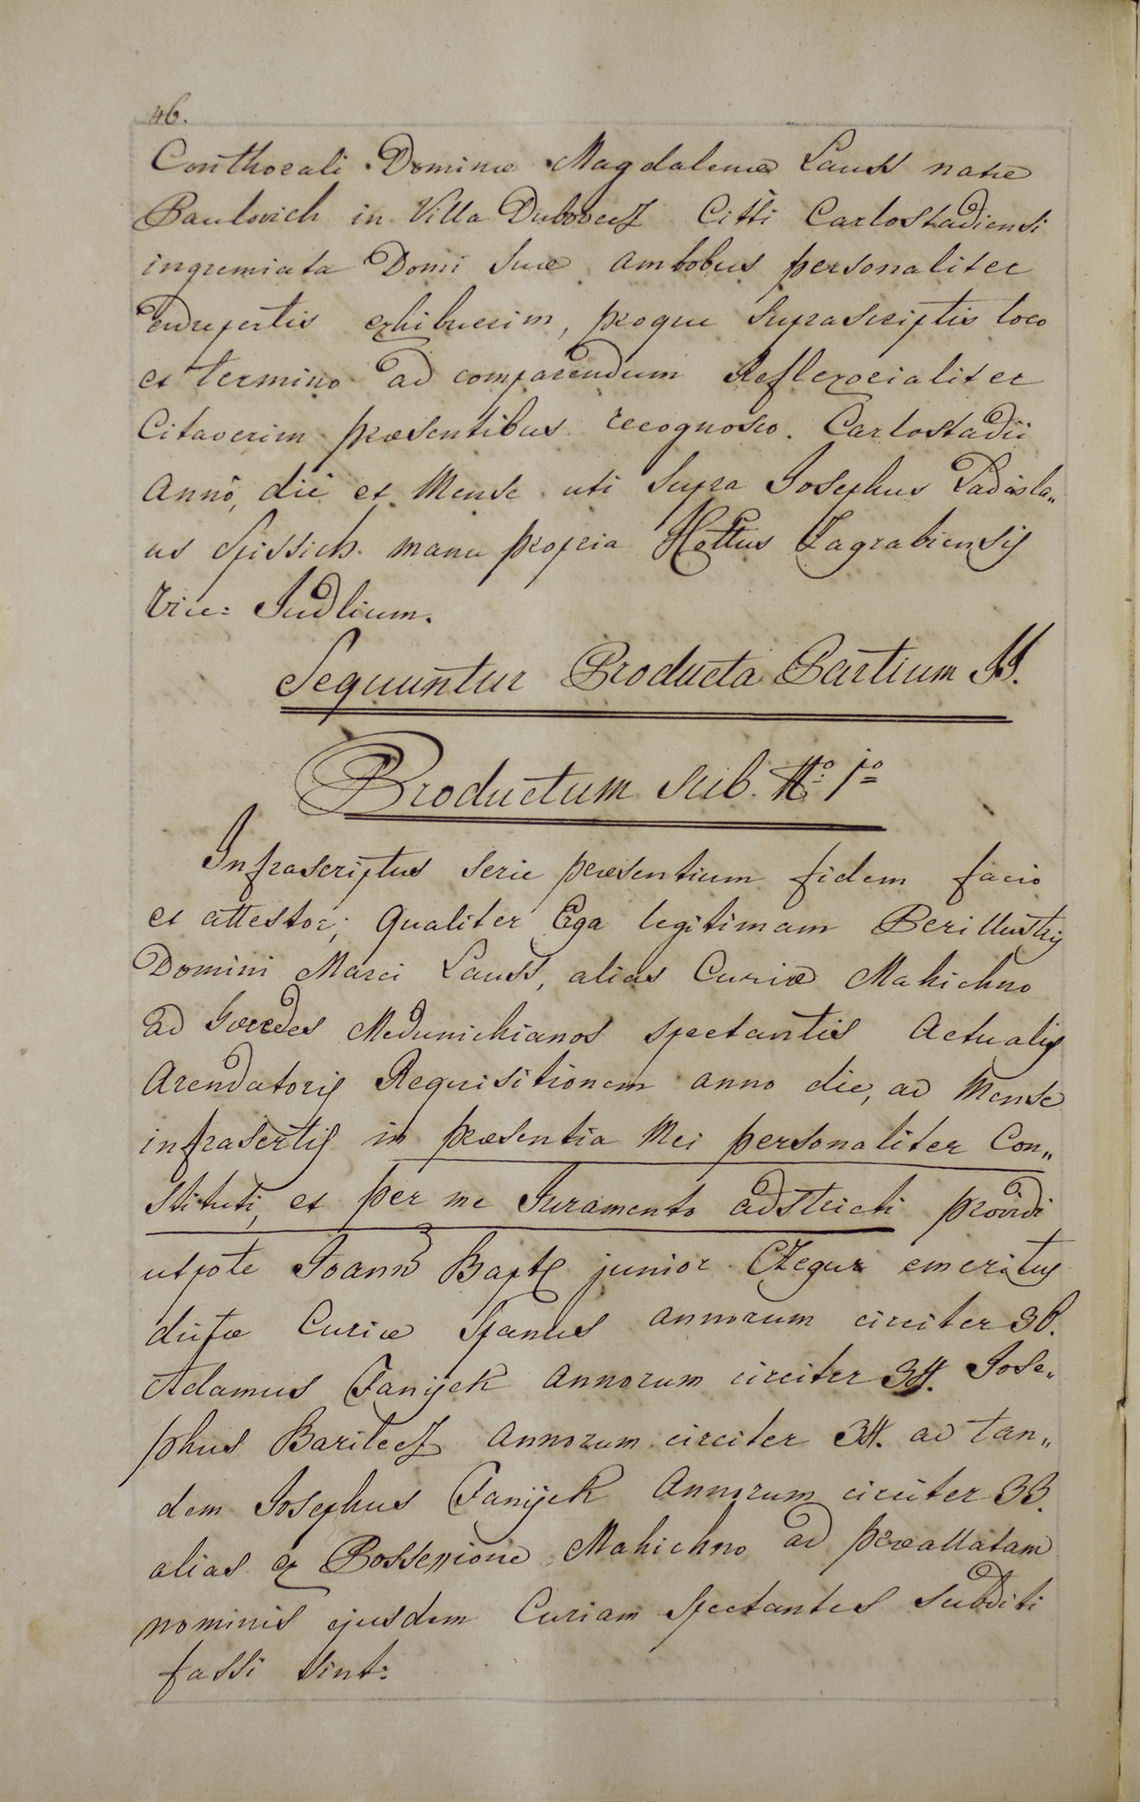 46.
Conthorali Dominæ Magdalenæ Lauss natæ
Paulovich in Villa Dubovecz Citti Carlostadiensi
ingremiata Domi suæ ambobus personaliter
eidrepertis exhibuerim, proque suprascriptis loco
et termino ad comparendum Reflexorialiter
Citaverim præsentibus recognosco. Carlostadii
Anno, die et Mense uti supra Josephus Ladisla„
us Spissich manu propria I Cottus Zagrabiensis
Vice= Judlium.
Sequuntur Producta Partium II.
Productum sub. N.º 1º
Infrascriptus serie præsentium fidem facio
et attestor; Qualiter Erga legitimam Perillustris
Domini Marci Lauss, alias Curiæ Mahichno
ad Hæredes Medunichianos spectantis Actualis
Arendatoris Requisitionem anno die, ac Mense
infrasertis in præsentia Mei personaliter Con„
stituti, et per me Juramento adstricti providi
utpote Joann Bapt junior Czegur emeritus
dictæ Curiæ Spanus annorum circiter 36.
Adamus Fanijek Annorum circiter 34. Jose„
phus Barilecz annorum circiter 34. ac tan„
dem Josephus Fanijek Annorum circiter 33.
alias ex Possessione Mahichno ad præallatam
nominis ejusdem Curiam spectantes subditi
fassi sint: